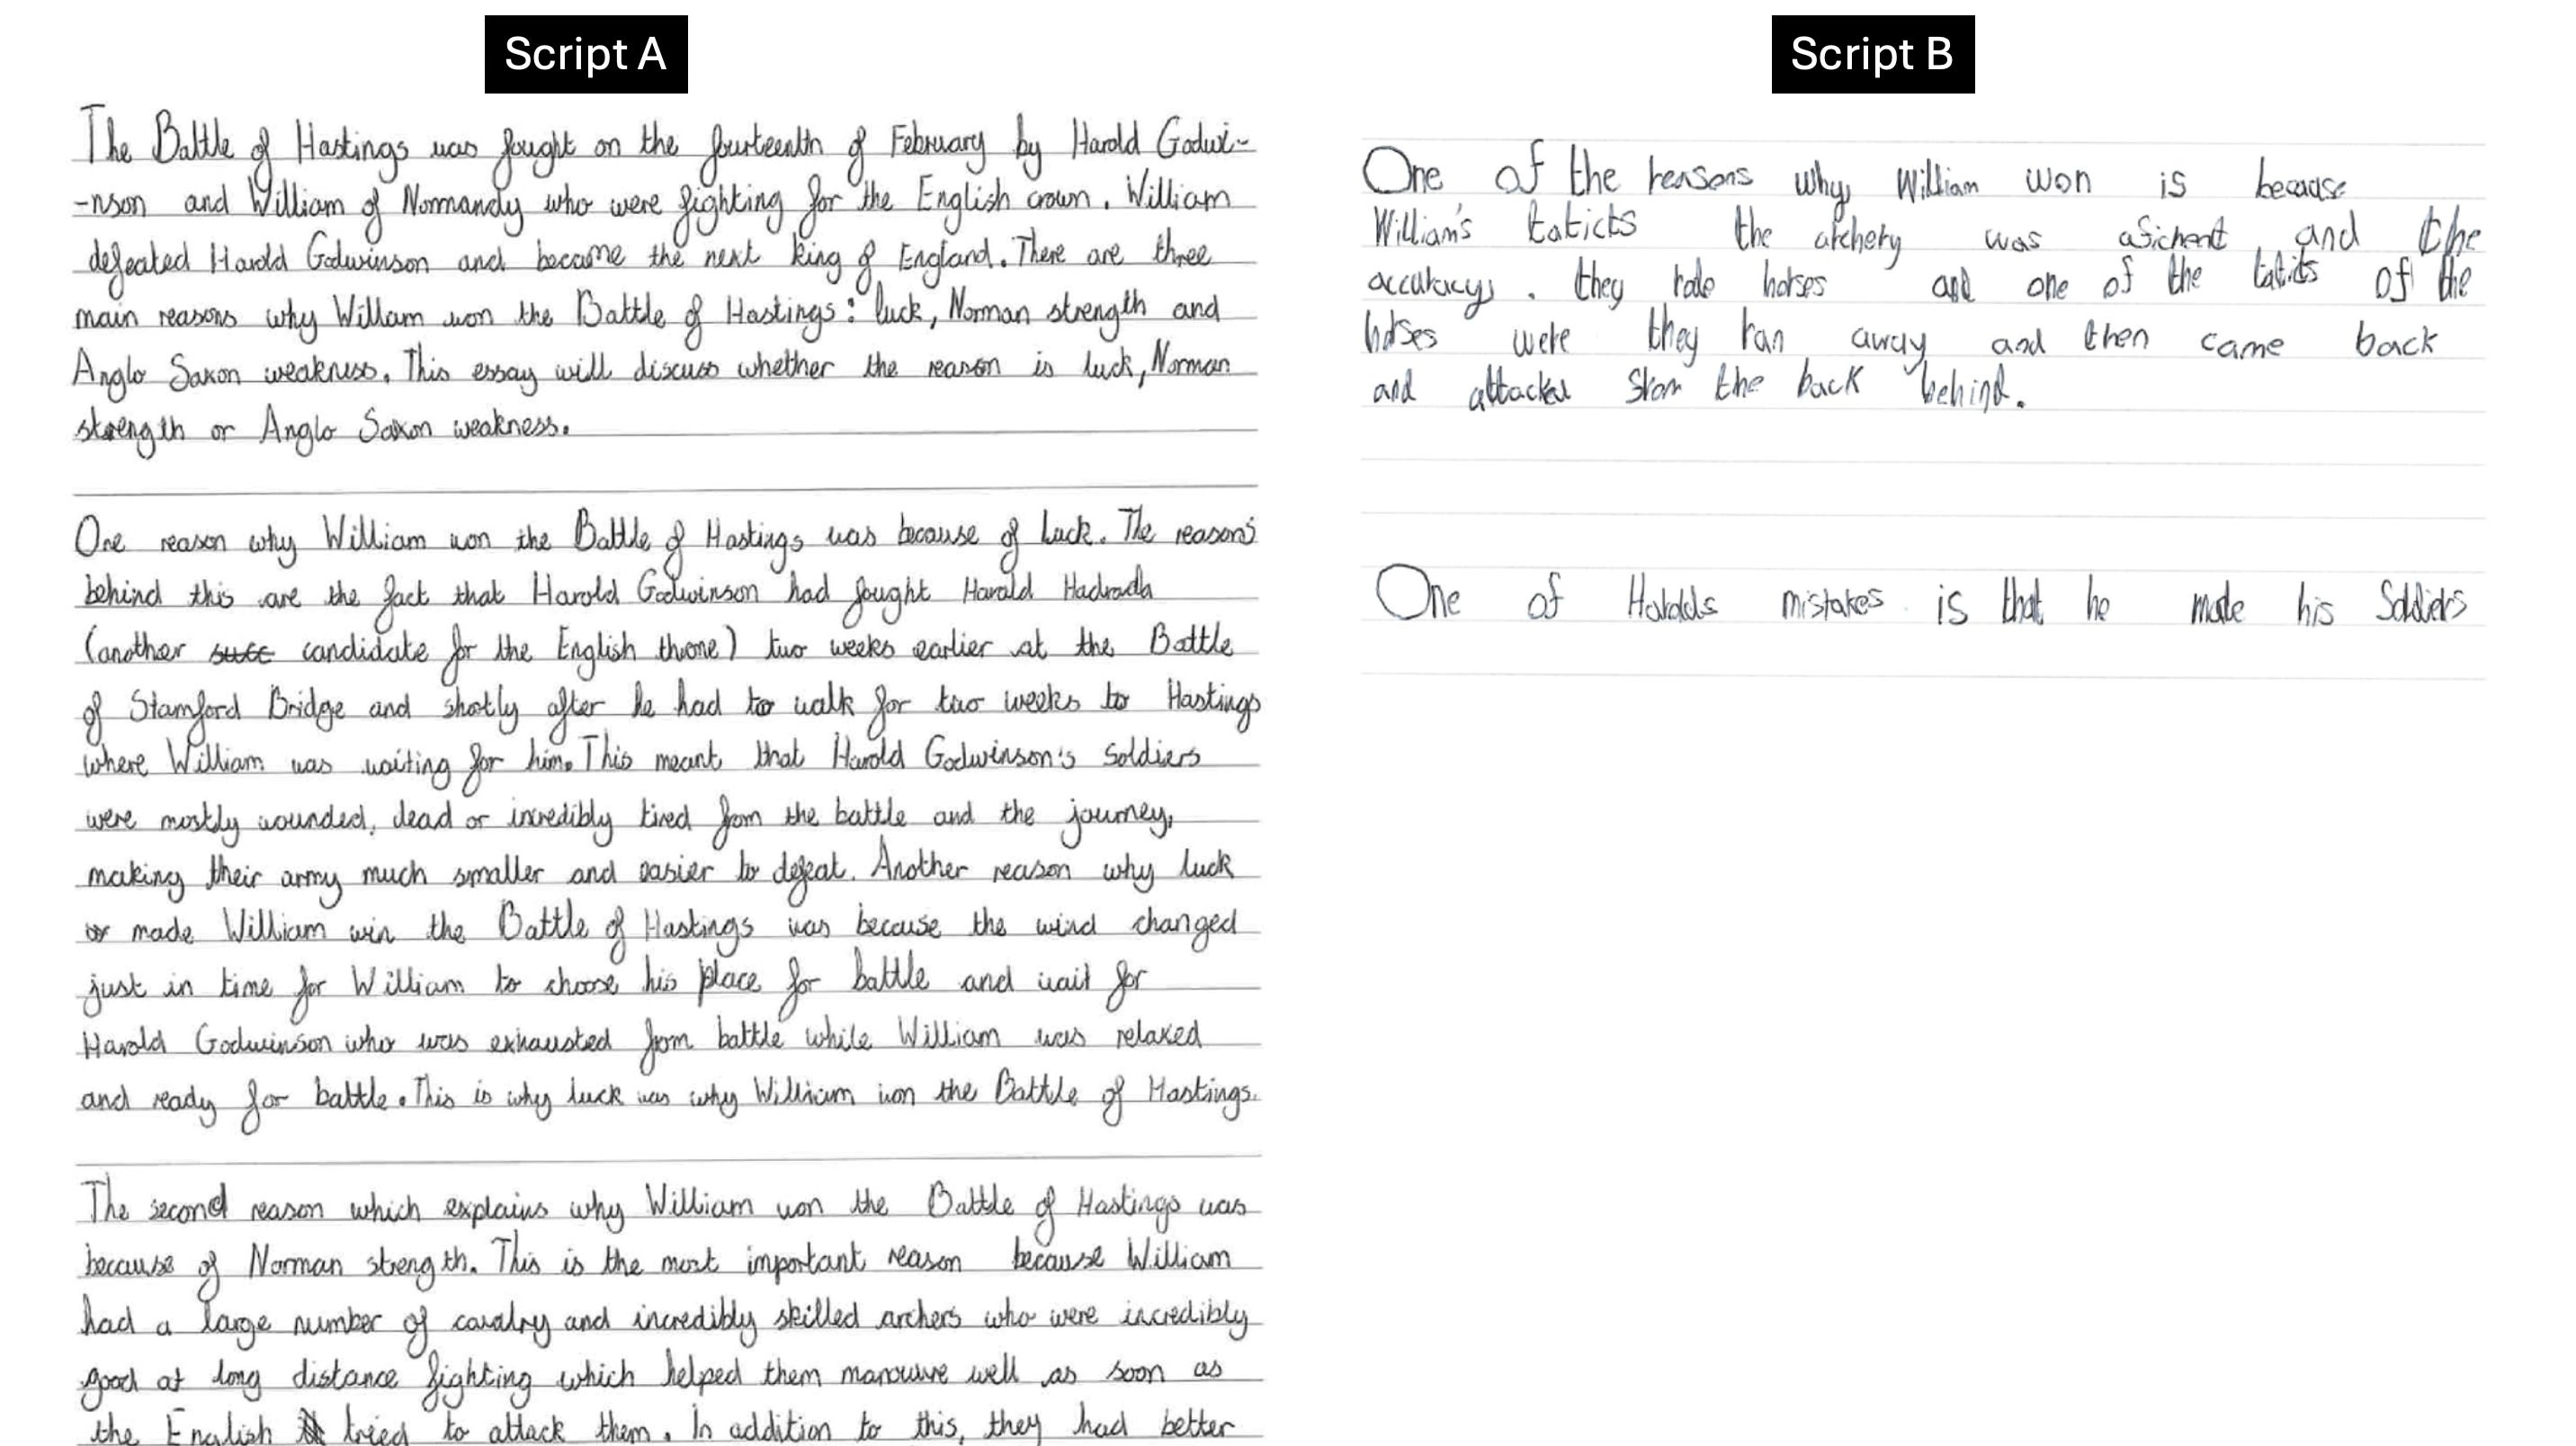 Script A
The Battle of Hastings was fought on the fourteenth of February by Harold Godwi-
-nson and William of Normandy who were fighting for the English crown. William
defeated Harold Godwinson and became the next king of England. There are three
main reasons why Willam won the Battle of Hastings: luck, Norman strength and
Anglo Saxon weakness. This essay will discuss whether the reason is luck, Norman
strength or Anglo Saxon weakness.
One reason why William won the Battle of Hastings was because of luck. The reason's
behind this are the fact that Harold Godwinson had fought Harald Hadrada
(another candidate for the English throne) two weeks earlier at the Battle
of Stamford Bridge and shotly after he had to walk for two weeks to Hastings
where William was waiting for him. This meant that Harold Godwinson's soldiers
were mostly wounded, dead or incredibly tired from the battle and the journey,
making their army much smaller and easier to defeat. Another reason why luck
made William win the Battle of Hastings was because the wind changed
just in time for William to choose his place for battle and wait for
Harold Godwinson who was exhausted from battle while William was relaxed
and ready for battle. This is why luck was why William won the Battle of Hastings.
The second reason which explains why William won the Battle of Hastings was
because of Norman strength. This is the most important reason because William
had a large number of cavalry and incredibly skilled archers who were incredibly
good at long distance fighting which helped them well as soon as
the English tried to attack them. In addition to this, they had better
Script B
One of the reasons why William won is because
William's taticts the archery was asichent and the
accuracy. they rode horses and one of the tatits of the
horses were they ran away and then came back
and attacked from the back behind.
One of Harolds mistakes is that he made his Soldiers